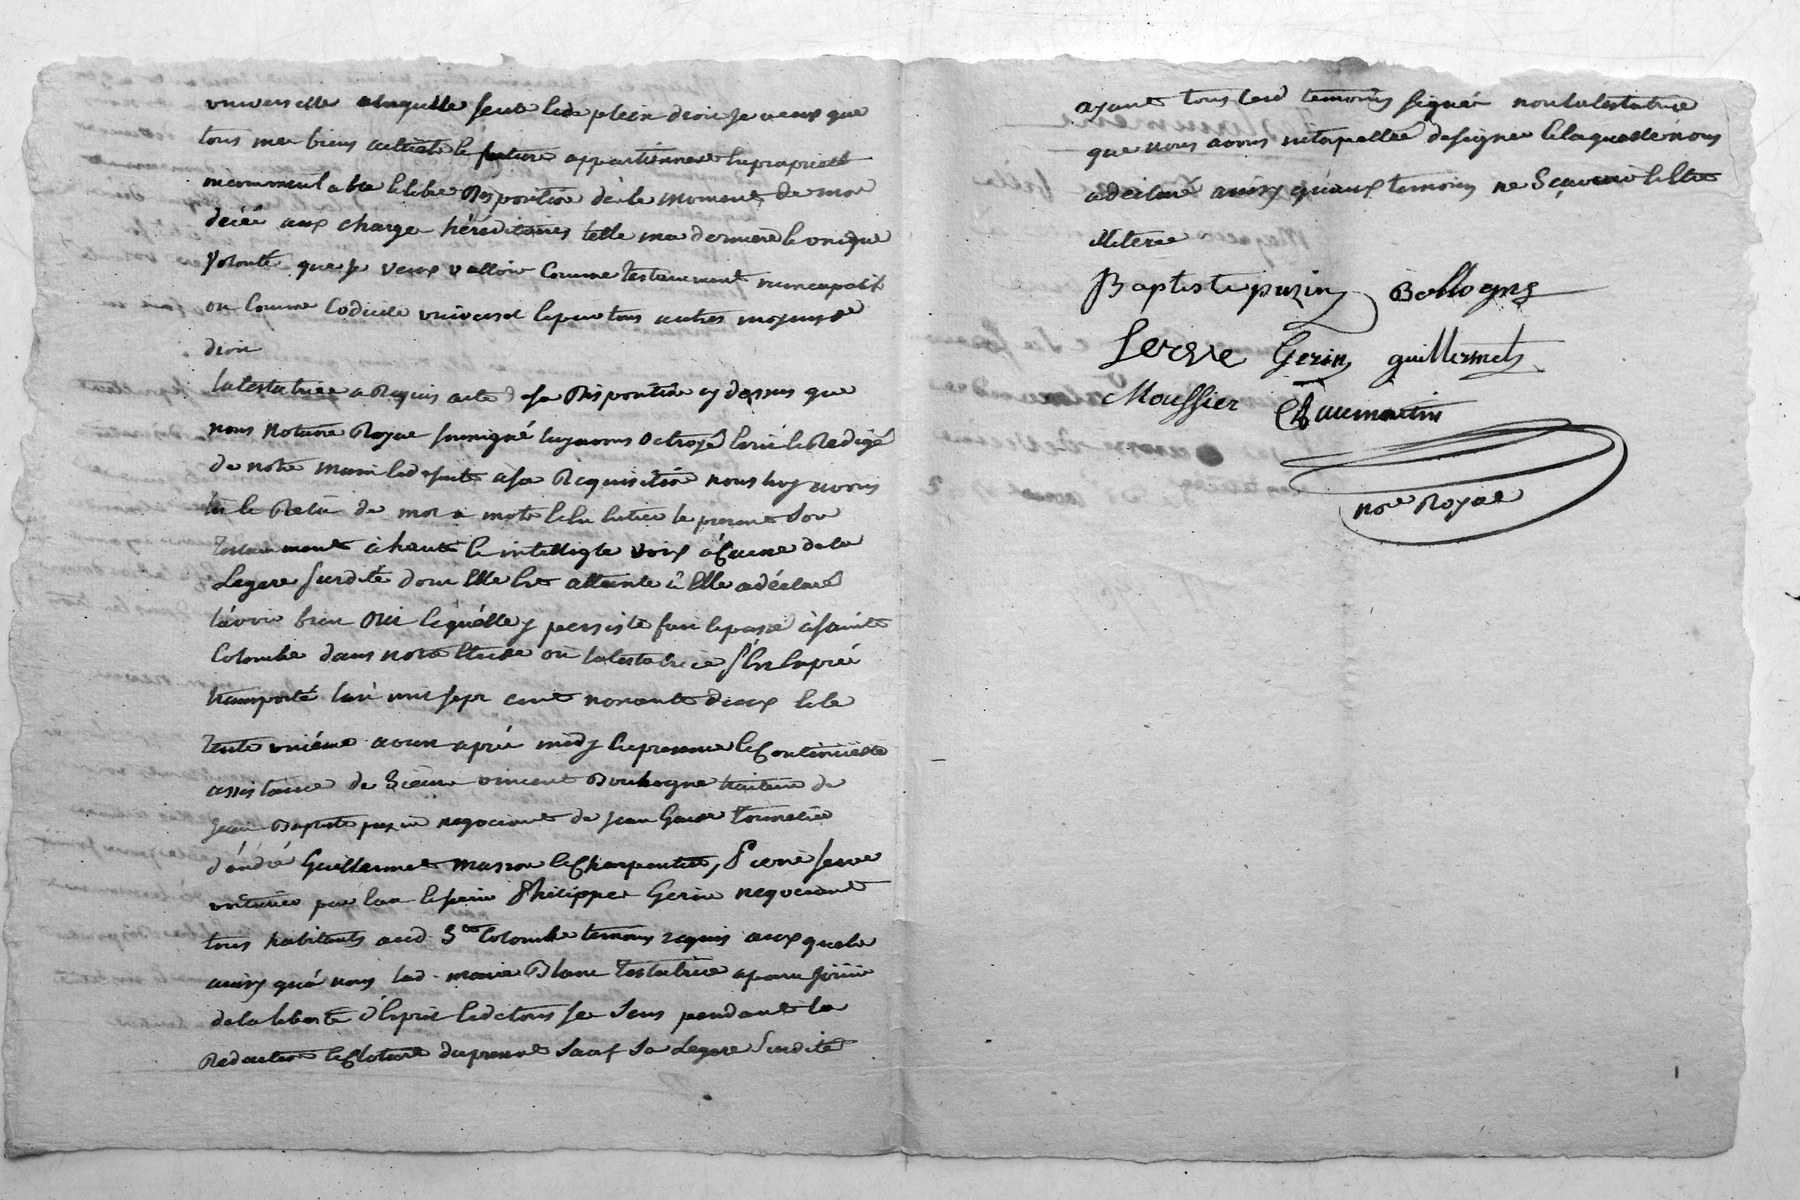 universelle a laquelle seule & de plein droit je veux que
tous mes biens actuels & future appartiennent en propriété
incommutable & libre disposition dès le moment de mon
décés aux charge héréditaires telle ma derniere & unique
volonté que je veux valloir comme testament nuncupatif
ou comme codicile universel & par tous autres moyens de
droit
la testatrice a Requis acte de sa Disposition cy dessus que
nous Notaire Royal soussigné luy avons octroyé Ecrit & Redigé
de notre main & de suite a sa Requisition nous luy avons
lû & Relu de mot a mot & en entier le present son
testament à haute & intelligle voix à cause de la
Legere surdité dont Elle Est atteinte & Elle a déclaré
l'avoir bien Oui & qu'elle y persiste fait & passé à sainte
Colombe dans notre Etude où la testatrice s'est Exprès
transporté l'an mil sept cent nonante deux & le
trente uniéme aout après midy En presence & Continuelle
assistance de Sieur vincent Boulogne traiteur de
Jean Baptiste puzin negociant de jean tonnelier
d'andré Guillermet masson & Charpentier, Pierre serve
voiturier par Eau & sieur Philippe Gerin negociant
tous habitants aud Ste Colombe temoins requis aux quels
ainsy qu'à nous lad. marie Blanc testatrice a paru jouir
de la liberté d'Esprit & de tous ses sens pendant la
Redaction & Cloture du present sauf sa Legere Surdité
ayant tous lesd temoins signés non la testatrice
que nous avons interpellée de signer & laquelle nous
a déclaré ainsy qu'aux temoins ne Sçavoir & Etre
illiterée
Baptiste puzin Bollogne
Serve Gerin guillermet
Moussier Chaumartin
nore Royal